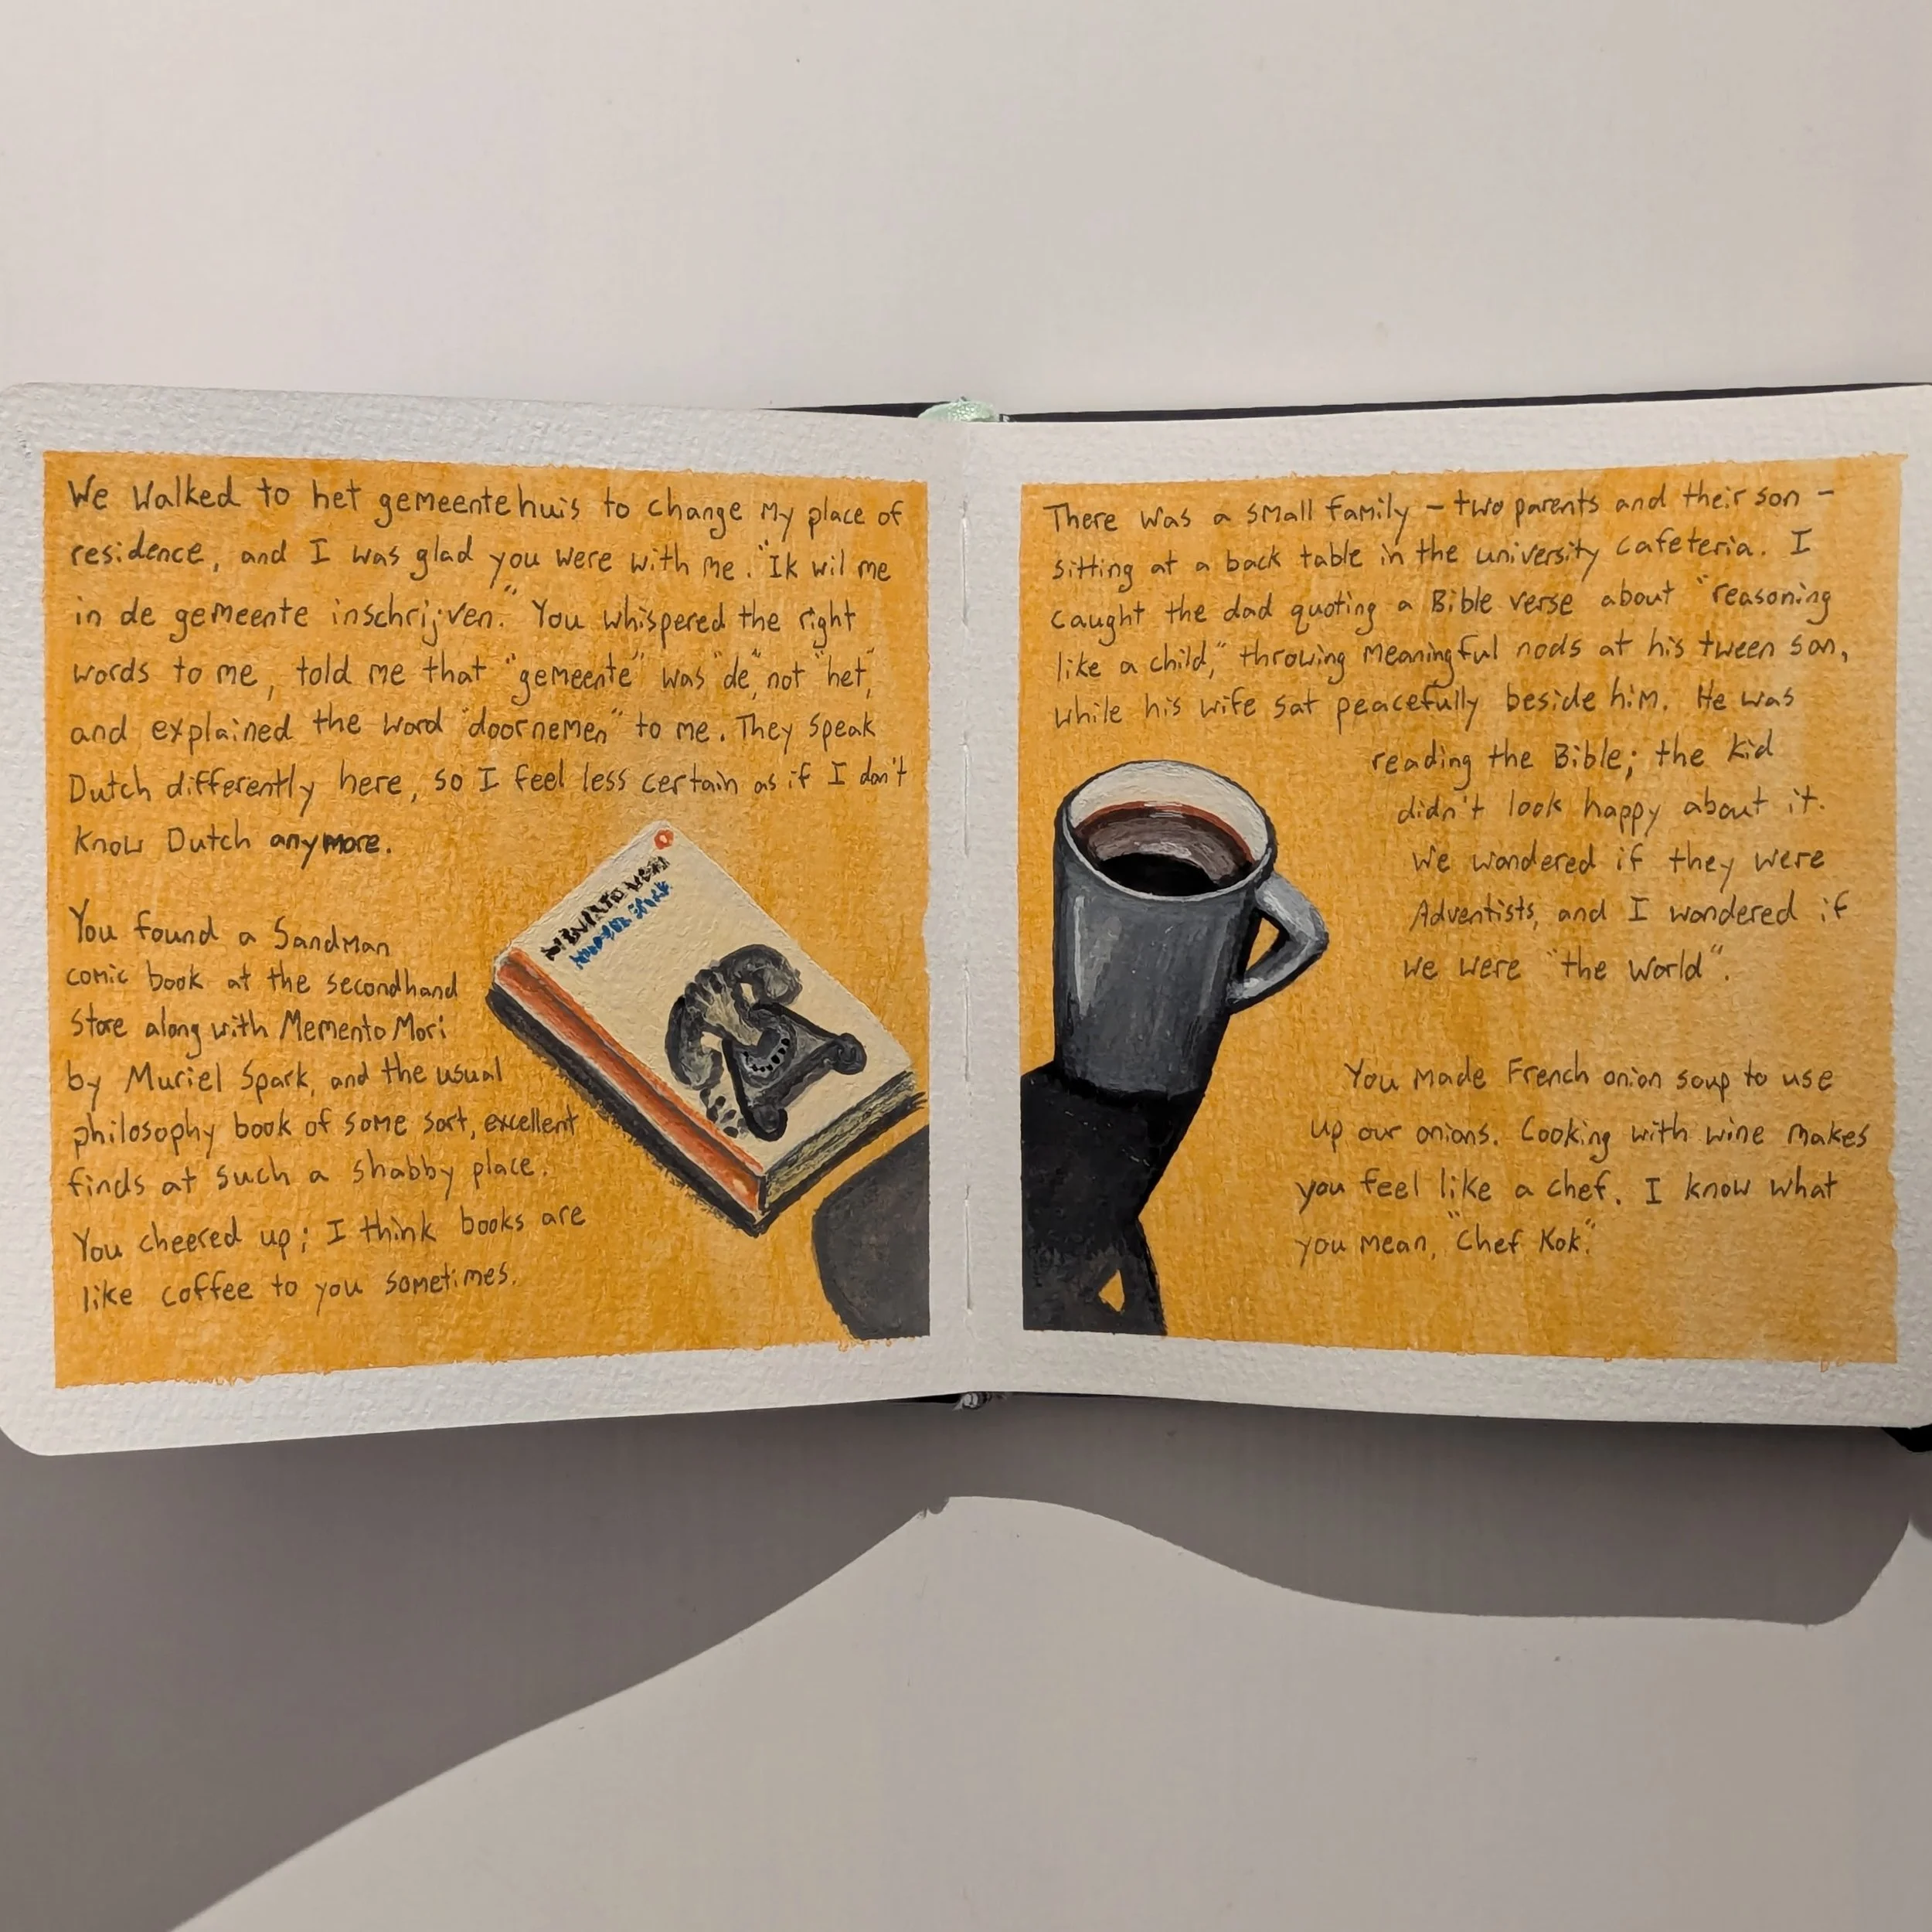 We walked to het gemeentehuis to change my place of
residence, and I was glad you were with me. "Ik wil me
in de gemeente inschrijven." You whispered the right
words to me, told me that "gemeente" was "de", not "het,"
and explained the word "doornemen" to me. They speak
Dutch differently here, so I feel less certain as if I don't
know Dutch anymore.
You found a Sandman
comic book at the secondhand
store along with Memento Mori
by Muriel Spark, and the usual
philosophy book of some sort, excellent
finds at such a shabby place.
You cheered up; I think books are
like coffee to you sometimes.
There was a small family – two parents and their son –
sitting at a back table in the university cafeteria. I
caught the dad quoting a Bible verse about "reasoning
like a child," throwing meaningful nods at his tween son,
while his wife sat peacefully beside him. He was
reading the Bible; the kid
didn't look happy about it.
We wondered if they were
Adventists, and I wondered if
we were "the world".
You made French onion soup to use
up our onions. Cooking with wine makes
you feel like a chef. I know what
you mean, "Chef Kok."